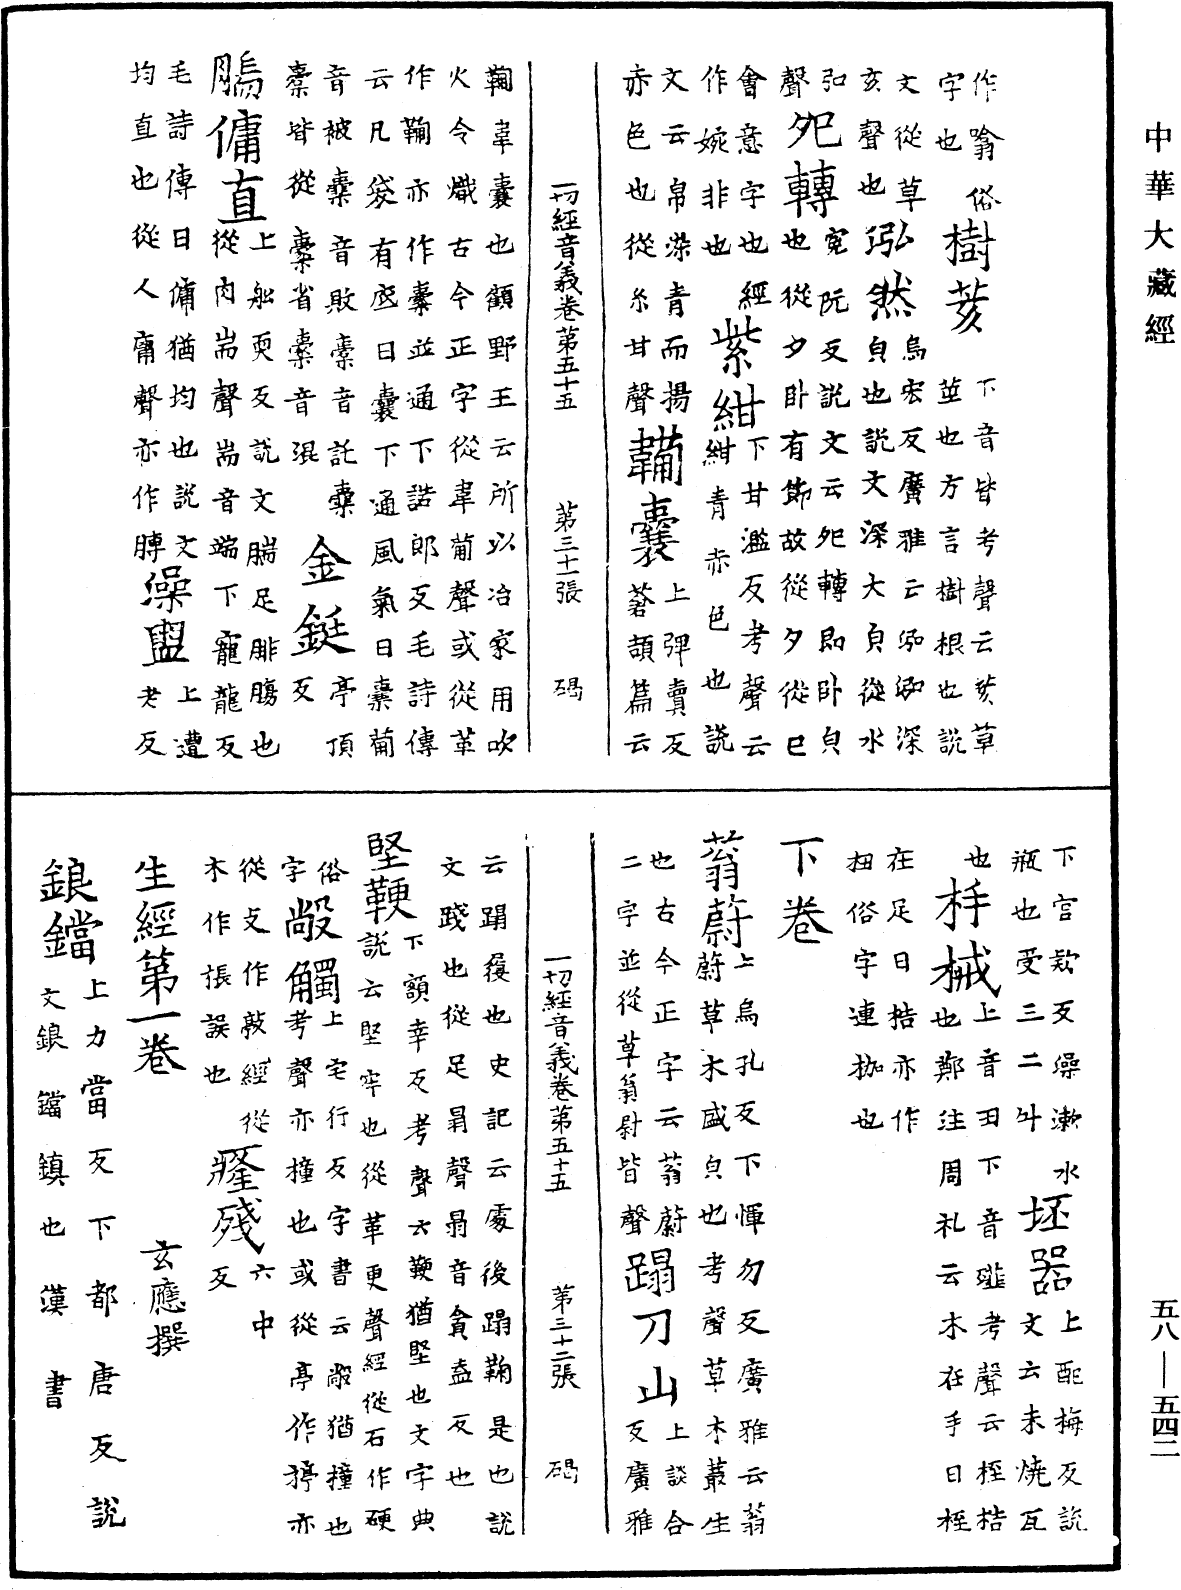 中華大藏經
作噏俗
字也
樹荄
下音皆考聲云荄草
莖也方言樹根也說
文從草
亥聲也
泓然
烏宏反廣雅云泓泓深
皃也說文深大皃從水
弘
聲
夗轉
宛阮反說文云夗轉即卧皃
也從夕卧有節故從夕從㔾
會意字也經
作婉非也
紫紺
下甘濫反考聲云
紺青赤色也說
文云帛染青而揚
赤色也從糸甘聲
韛囊
上彈賣反
蒼頡篇云
一切經音義卷第五十五　第三十一張　碣
鞴韋囊也顧野王云所以冶家用吹
火令熾古今正字從韋葡聲或從革
作鞴亦作橐並通下諾郎反毛詩傳
云凡袋有底曰囊下通風氣曰橐葡
音被橐音敗橐音託橐
橐皆從橐省橐音混
金鋌
亭頂
反
腨傭直
上舩耎反說文腨足腓腸也
從肉耑聲耑音端下寵龍反
毛詩傳曰傭猶均也說文
均直也從人庸聲亦作膞
澡盥
上遭
老反
下官欵反澡漱水
瓶也受三二升
坯器
上配梅反說
文云未燒瓦
也
杽械
上音丑下音𨾏考聲云桎梏
也鄭注周礼云木在手曰桎
在足曰梏亦作
杻俗字連枷也
下卷
蓊蔚
上烏孔反下惲勿反廣雅云蓊
蔚草木盛皃也考聲草木叢生
也古今正字云蓊蔚
二字並從草翁尉皆聲
蹋刀山
上談合
反廣雅
一切經音義卷第五十五　第三十二張　碣
云蹋履也史記云處後蹋鞠是也說
文踐也從足𦐇聲𦐇音貪盍反也
堅鞕
下額幸反考聲云鞕猶堅也文字典
說云堅牢也從革更聲經從石作硬
俗
字
敞觸
上宅行反字書云敞猶撞也
考聲亦撞也或從亭作揨亦
從攴作敲經從
木作振誤也
㾮殘
六中
反
生經第一卷　玄應撰
鋃鐺
上力當反下都唐反說
文鋃鐺鎮也漢書
五八—五四二